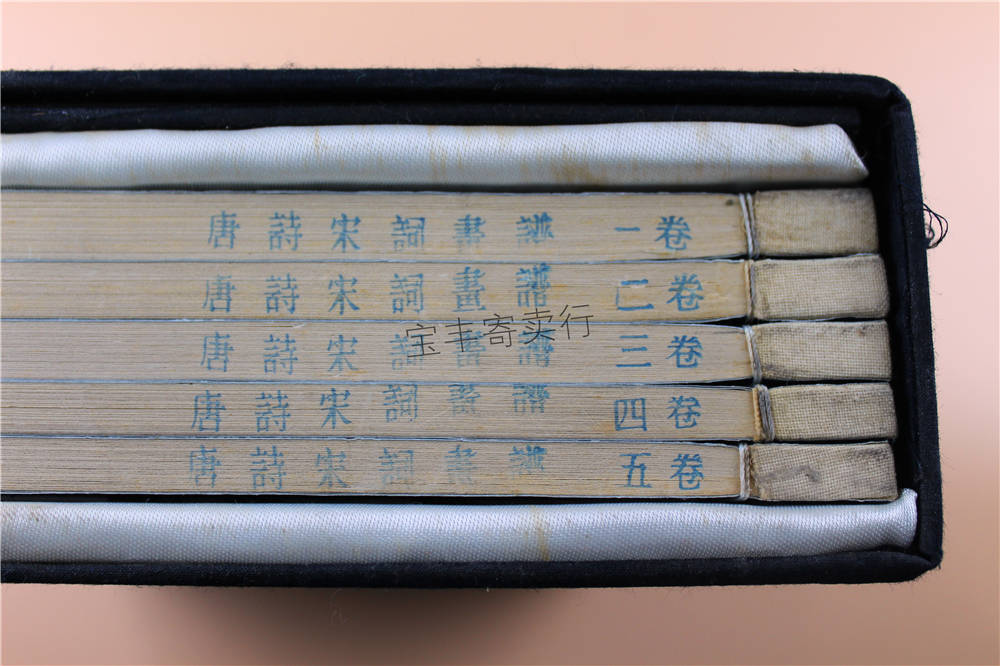 唐詩宋詞畫譜 一卷
唐詩宋詞畫譜 二卷
唐詩宋詞畫譜 三卷
宝丰寄卖行
唐詩宋詞畫譜 四卷
唐詩宋詞畫譜 五卷